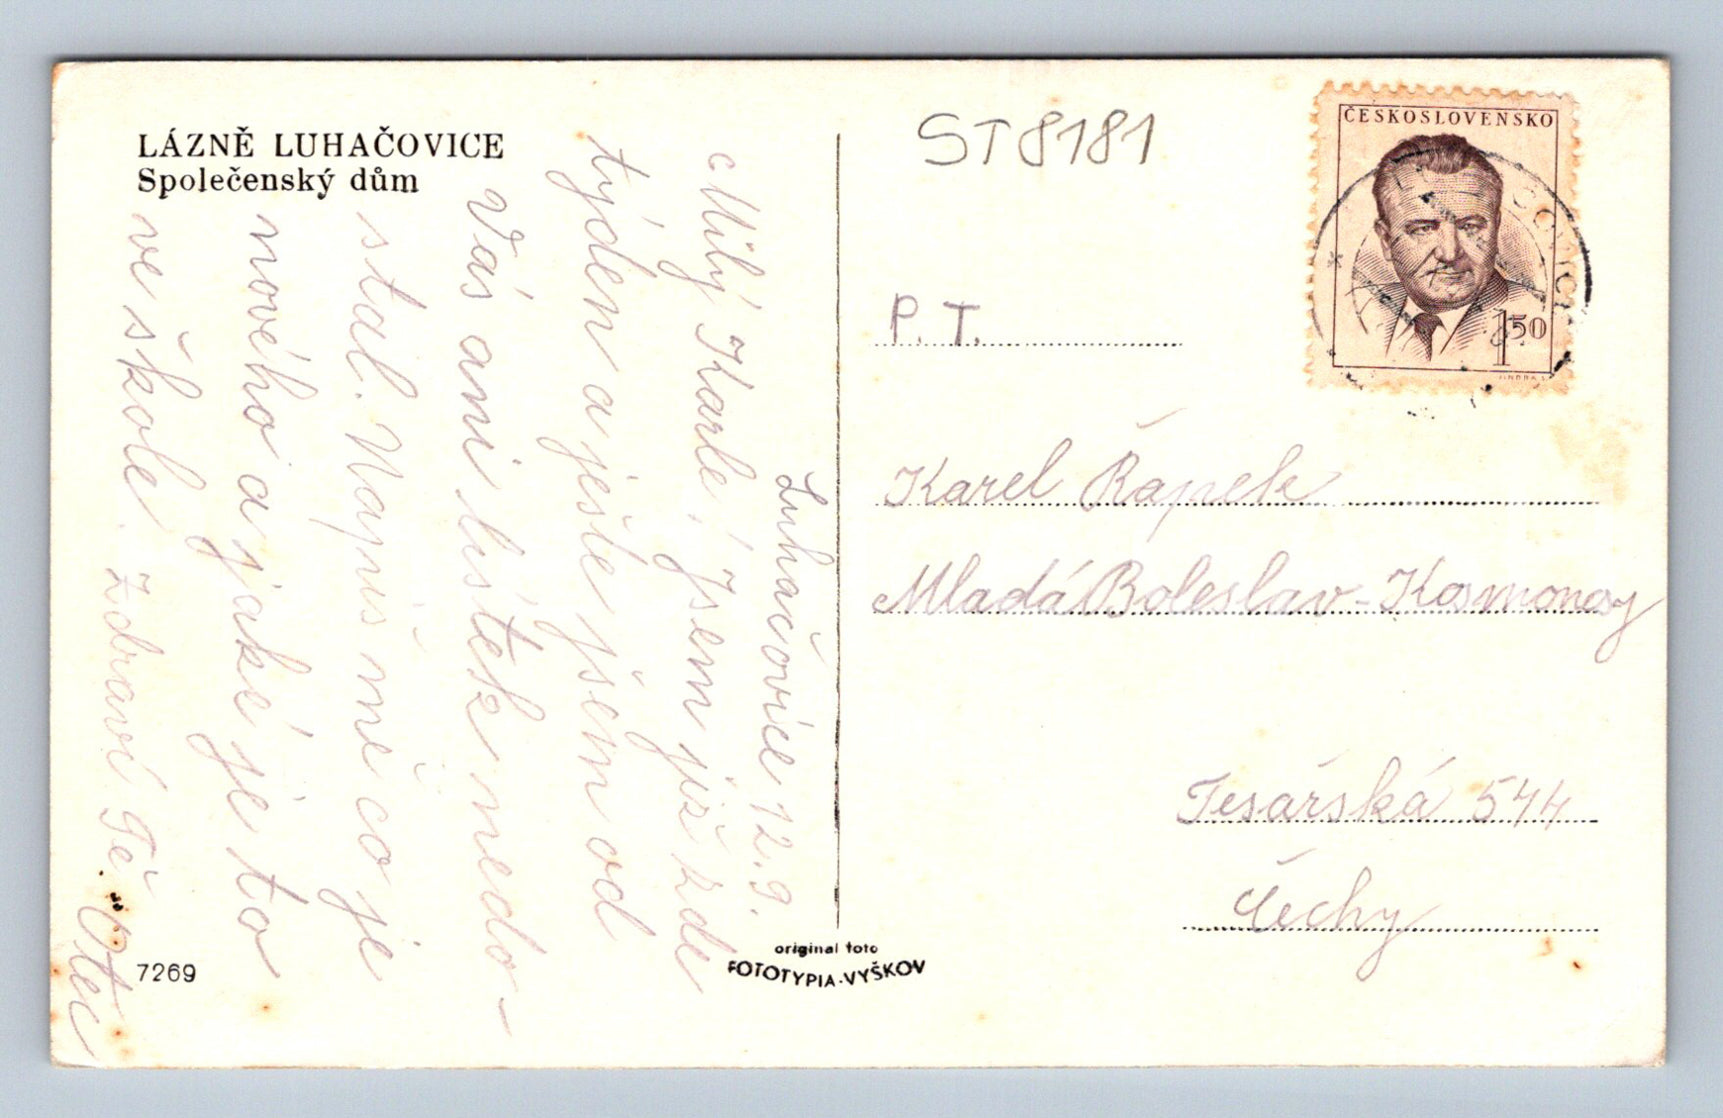 LÁZNĚ LUHAČOVICE
Společenský dům
Luhačovice 12.9.
Milý Karle, Jsem již zde
týden a ješte jsem od
Vás ani lístek nedo-
stal. Napiš mě co je
nového a jaké je to
ve škole. Zdraví Tě.
Otec
7269
original foto
FOTOTYPIA-VYŠKOV
ST8181
ČESKOSLOVENSKO
1.50
P. T.
Karel Řápek
Mladá Boleslav-Kosmonosy
Tesářská 544
Čechy